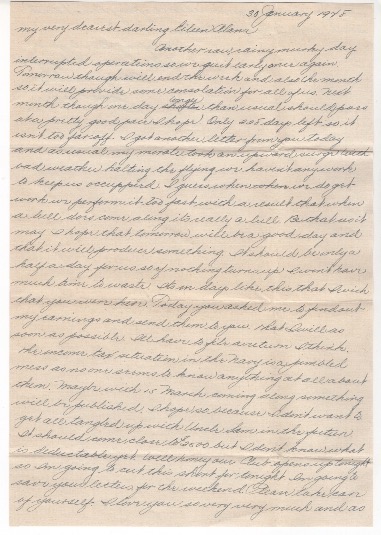 30 January 1945
my very dearest darling Eileen Alana
Another raw, rainy murky day
interrupted operations so we quit early once again.
Tomorrow though will end the week and also the month
so it will provide some consolation for all of us. Next
month though one day longer than usual should pass
at a pretty good pace I hope. Only 205 days left so it
isn't too far off. I got another letter from you today
and as usual my morale took an upward surge. With
bad weather halting the flying we haven't any work
to keep us occupied. I guess when we do get
work we perform it too fast with a result that when
a lull does come along its really a lull. Be that as it
may I hope that tomorrow will be a good day and
that it will produce something. It should be only a
half a day for us so if nothing turns up I won't have
much time to waste. Its on days like this that I wish
that you were here. Today you asked me to find out
my earnings and send them to you. That I will as
soon as possible. I'll have to file a return I think.
The income tax situation in the Navy is a jumbled
mess as no one seems to know anything at all about
them. Maybe with 15 March coming along something
will be published. I hope so because I don't want to
get all tangled up with Uncle Sam in the future
It should come close to but I don't know what
is deductable yet. Well honey our Club opens up tonight
so I'm going to cut this short for tonight. I'm going to
save your letters for the weekend. Please take care
of yourself. I love you so very very much and as